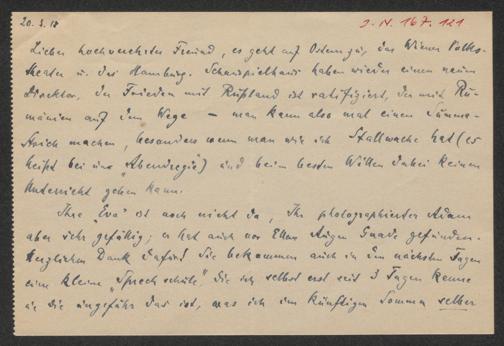 20. 3. 18
J. N. 167. 121
Lieber hochverehrter Freund, es geht auf Ostern zu, das Wiener Volks-
theater u. das Hamburg. Schauspielhaus haben wieder einen neuen
Direktor, der Frieden mit Rußland ist ratifiziert, der mit Ru-
mänien auf dem Wege – man kann also mal einen
machen, besonders wenn man wie ich Stallwache hat (es
heißt bei uns „Abendregie") und beim besten Willen dabei keinen
Unterricht geben kann.
Ihre „Eva" ist noch nicht da, Ihr photographierter Adam
aber sehr gefällig; er hat auch vor Ellens Augen Gnade gefunden.
Herzlichen Dank dafür! Sie bekommen auch in den nächsten Tagen
eine kleine „Sprechschule", die ich selbst erst seit 3 Tagen kenne
u. die ungefähr das ist, was ich im künftigen Sommer selber